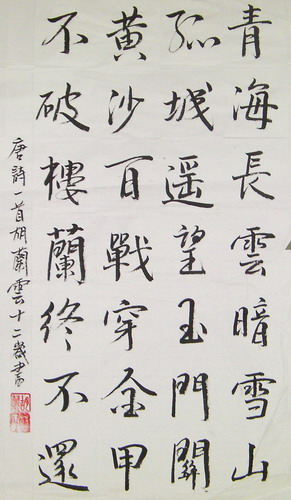 青海長雲暗雪山
孤城遥望玉門關
黃沙百戰穿金甲
不破樓蘭終不還
唐詩一首胡蘭雲十二歲書